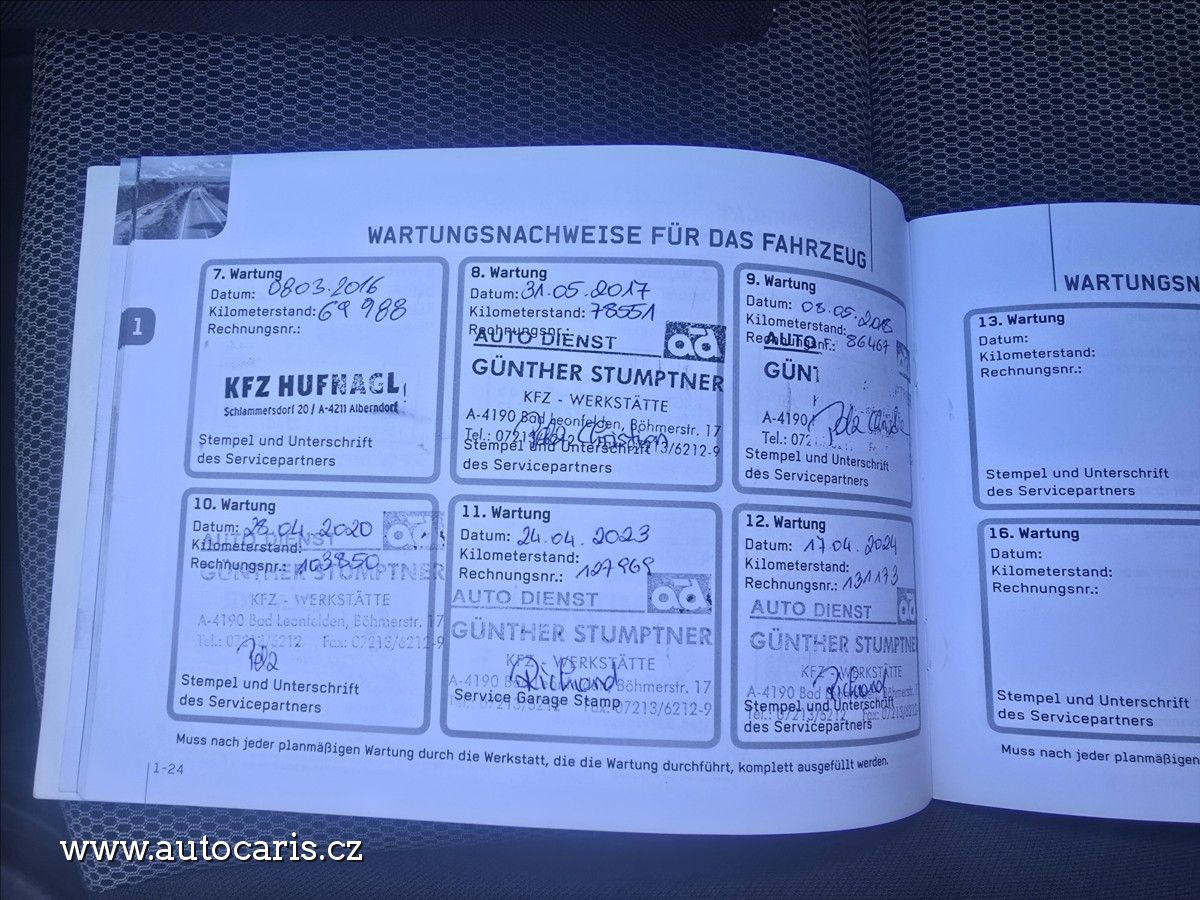 WARTUNGSNACHWEISE FÜR DAS FAHRZEUG
7. Wartung
Datum: 08 03. 2016
Kilometerstand: 69 988
Rechnungsnr.:
KFZ HUFNAGL
Schlammersdorf 20 / A-4211 Alberndorf
Stempel und Unterschrift
des Servicepartners
8. Wartung
Datum: 31.05.2017
Kilometerstand: 78551
Rechnungsnr.:
AUTO DIENST ad
GÜNTHER STUMPTNER
KFZ - WERKSTÄTTE
A-4190 Bad Leonfelden, Böhmerstr. 17
Tel.: 07213/6212 Fax: 07213/6212-9
Christian
Stempel und Unterschrift
des Servicepartners
9. Wartung
Datum: 08.05.2018
Kilometerstand:
Rechnungsnr.: 86467
AUTO
GÜNT
A-4190
Tel.: 072
Stempel und Unterschrift
des Servicepartners
10. Wartung
Datum: 28.04.2020
Kilometerstand:
Rechnungsnr.: 103850
AUTO DIENST ad
GÜNTHER STUMPTNER
KFZ - WERKSTÄTTE
A-4190 Bad Leonfelden, Böhmerstr. 17
Tel.: 07213/6212 Fax: 07213/6212-9
Stempel und Unterschrift
des Servicepartners
11. Wartung
Datum: 24.04.2023
Kilometerstand:
Rechnungsnr.: 127969
AUTO DIENST ad
GÜNTHER STUMPTNER
KFZ - WERKSTÄTTE
Richard
A-4190 Bad Leonfelden, Böhmerstr. 17
Service Garage Stamp
Tel.: 07213/6212 Fax: 07213/6212-9
12. Wartung
Datum: 17.04.2024
Kilometerstand:
Rechnungsnr.: 131173
AUTO DIENST ad
GÜNTHER STUMPTNE
KFZ - WERKSTÄTTE
Richard
A-4190 Bad Leonfelden, Böhmerstr. 1
Stempel und Unterschrift
Tel.: 07213/6212 Fax: 07213/6212
des Servicepartners
Muss nach jeder planmäßigen Wartung durch die Werkstatt, die die Wartung durchführt, komplett ausgefüllt werden.
1-24
1
WARTUNGSN
13. Wartung
Datum:
Kilometerstand:
Rechnungsnr.:
Stempel und Unterschrift
des Servicepartners
16. Wartung
Datum:
Kilometerstand:
Rechnungsnr.:
Stempel und Unterschrift
des Servicepartners
Muss nach jeder planmäßigen
www.autocaris.cz